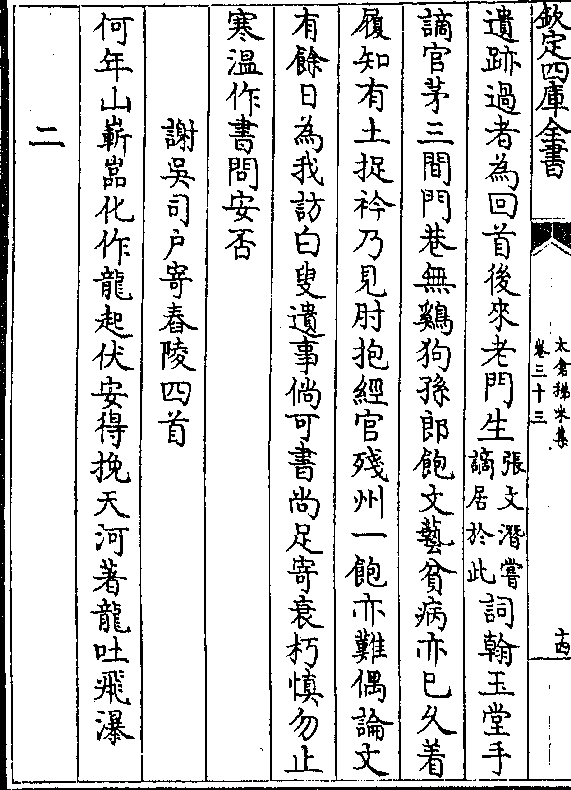 欽定四庫全書
太倉稊米集
卷三十三
十四
遺跡過者為回首後來老門生張文潛嘗謫居於此詞翰玉堂手
謫官茅三間門巷無鷄狗孫郎飽文藝貧病亦已久着
履知有土捉衿乃見肘抱經官殘州一飽亦難偶論文
有餘日為我訪白叟遺事倘可書尚足寄衰朽慎勿止
寒温作書問安否
謝吳司户寄舂陵四首
何年山嶄嵓化作龍起伏安得挽天河著龍吐飛瀑
二